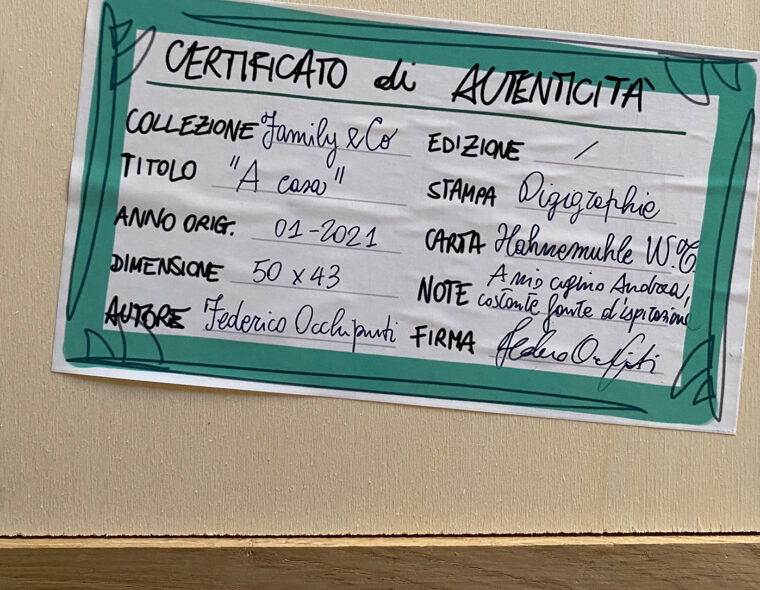 CERTIFICATO di AUTENTICITÀ
COLLEZIONE Family & Co
TITOLO "A casa"
ANNO ORIG. 01-2021
DIMENSIONE 50 x 43
AUTORE Federico Occhipinti
EDIZIONE /
STAMPA Digigraphie
CARTA Hahnemuhle
NOTE A mio cugino Andrea,
costante fonte d'ispirazione
FIRMA